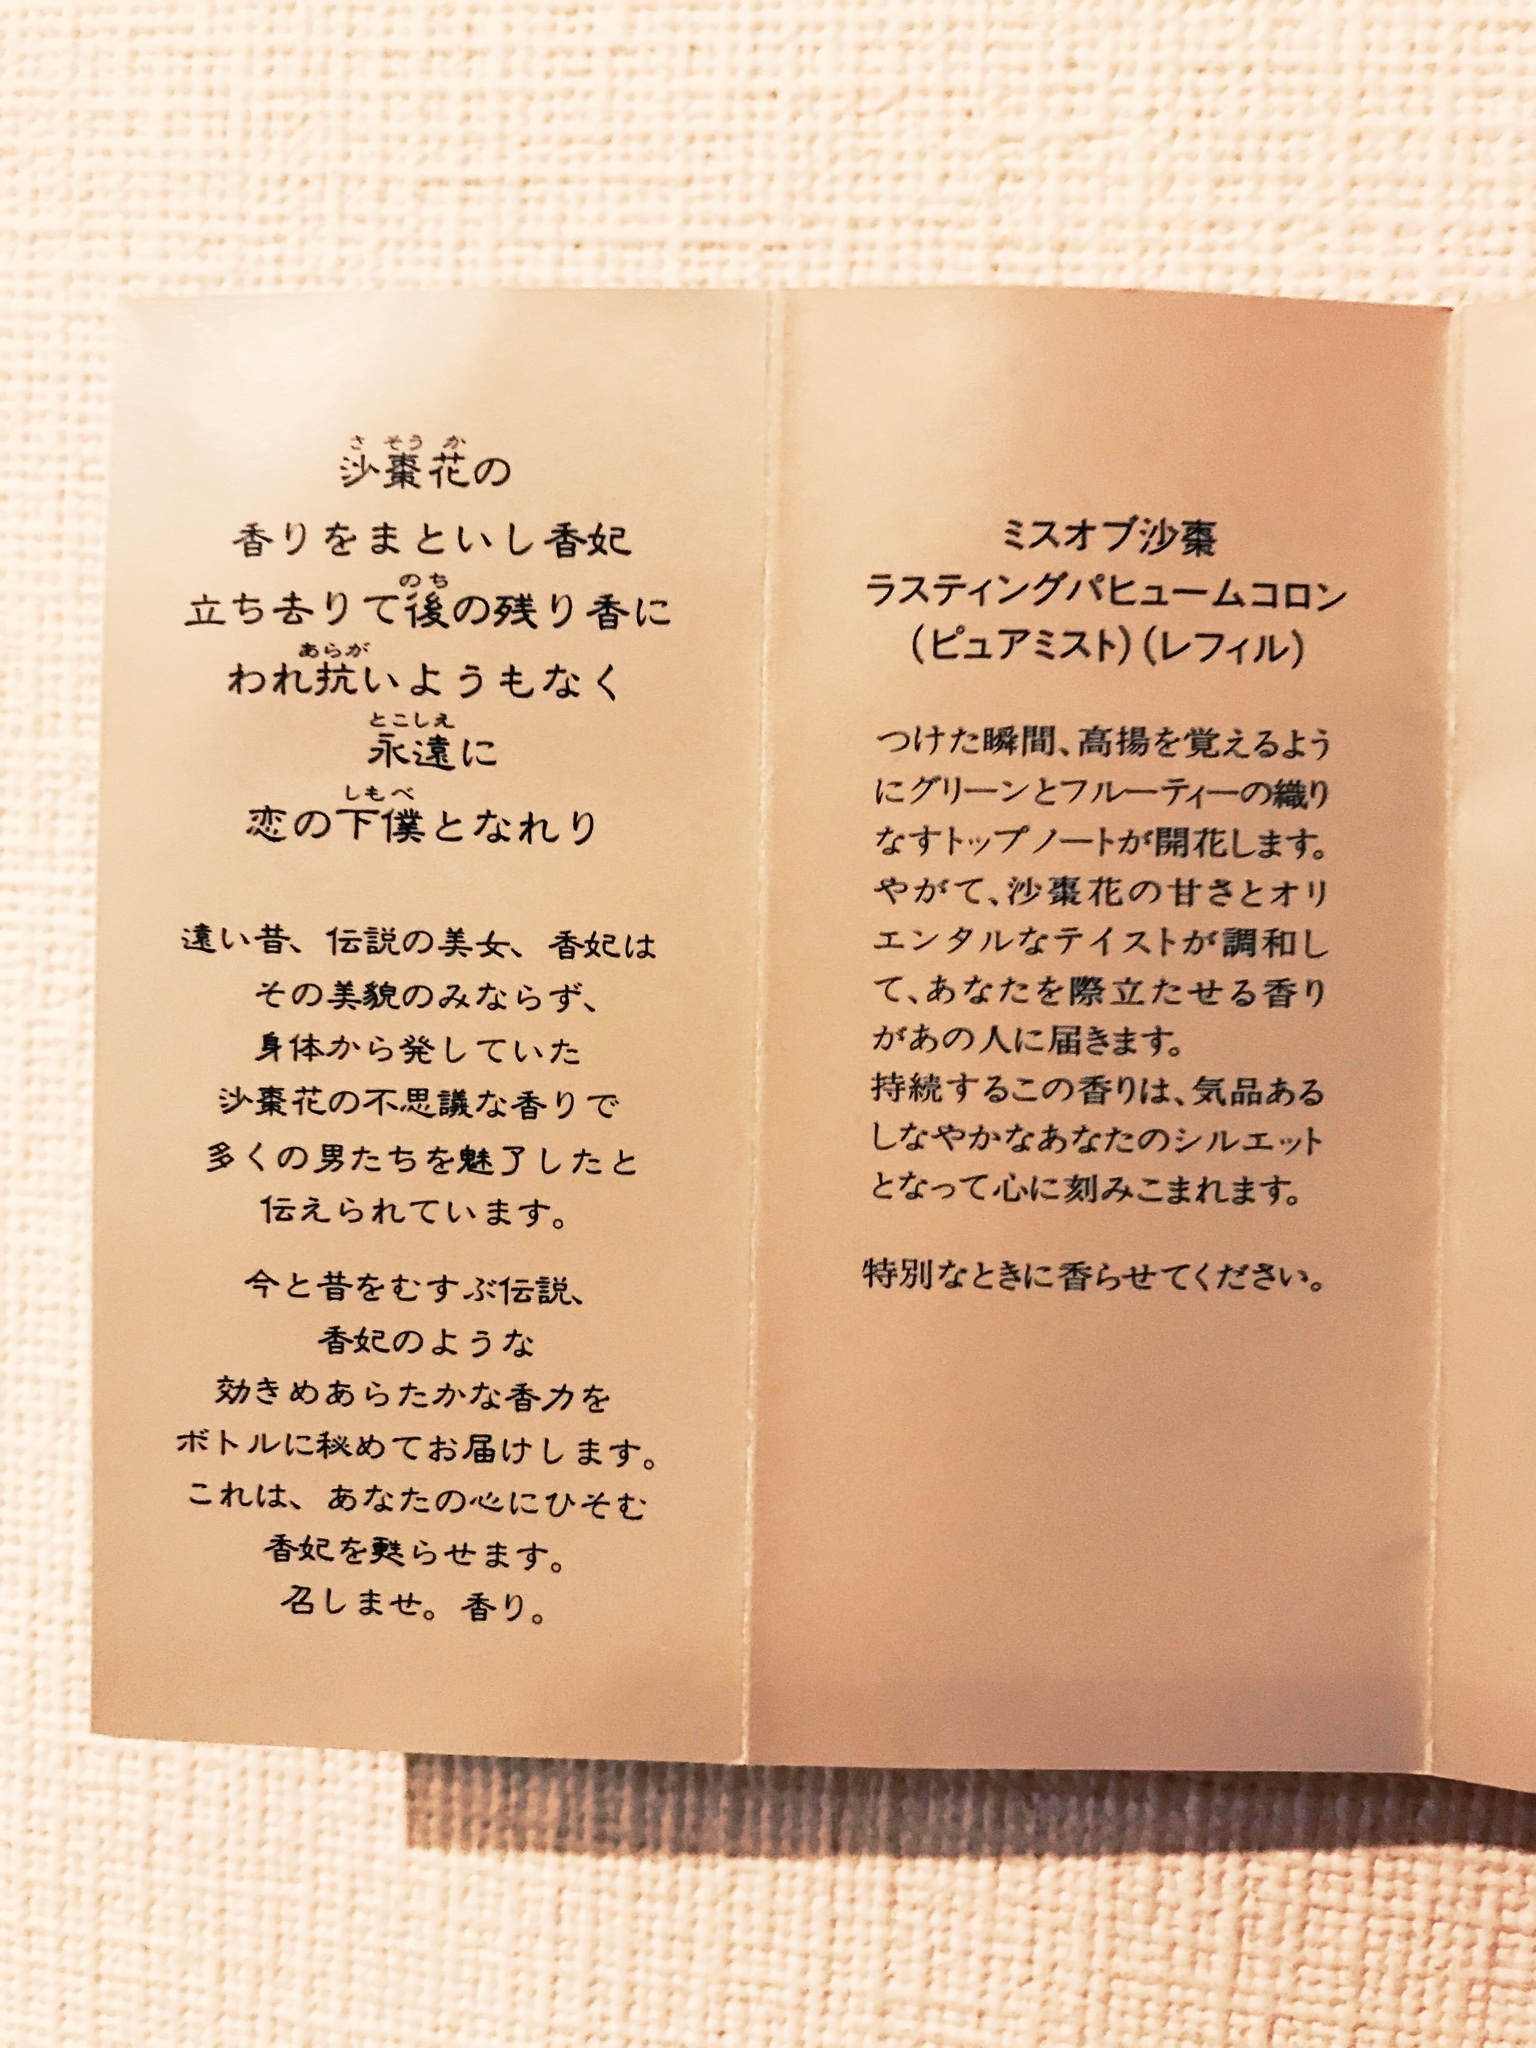 さ そう か
沙棗花の
香りをまといし香妃
のち
立ち去りて後の残り香に
あらが
われ抗いようもなく
とこしえ
永遠に
しもべ
恋の下僕となれり
遠い昔、伝説の美女、香妃は
その美貌のみならず、
身体から発していた
沙棗花の不思議な香りで
多くの男たちを魅了したと
伝えられています。
今と昔をむすぶ伝説、
香妃のような
効きめあらたかな香力を
ボトルに秘めてお届けします。
これは、あなたの心にひそむ
香妃を甦らせます。
召しませ。香り。
ミスオブ沙棗
ラスティングパヒュームコロン
(ピュアミスト)(レフィル)
つけた瞬間、高揚を覚えるよう
にグリーンとフルーティーの織り
なすトップノートが開花します。
やがて、沙棗花の甘さとオリ
エンタルなテイストが調和し
て、あなたを際立たせる香り
があの人に届きます。
持続するこの香りは、気品ある
しなやかなあなたのシルエット
となって心に刻みこまれます。
特別なときに香らせてください。